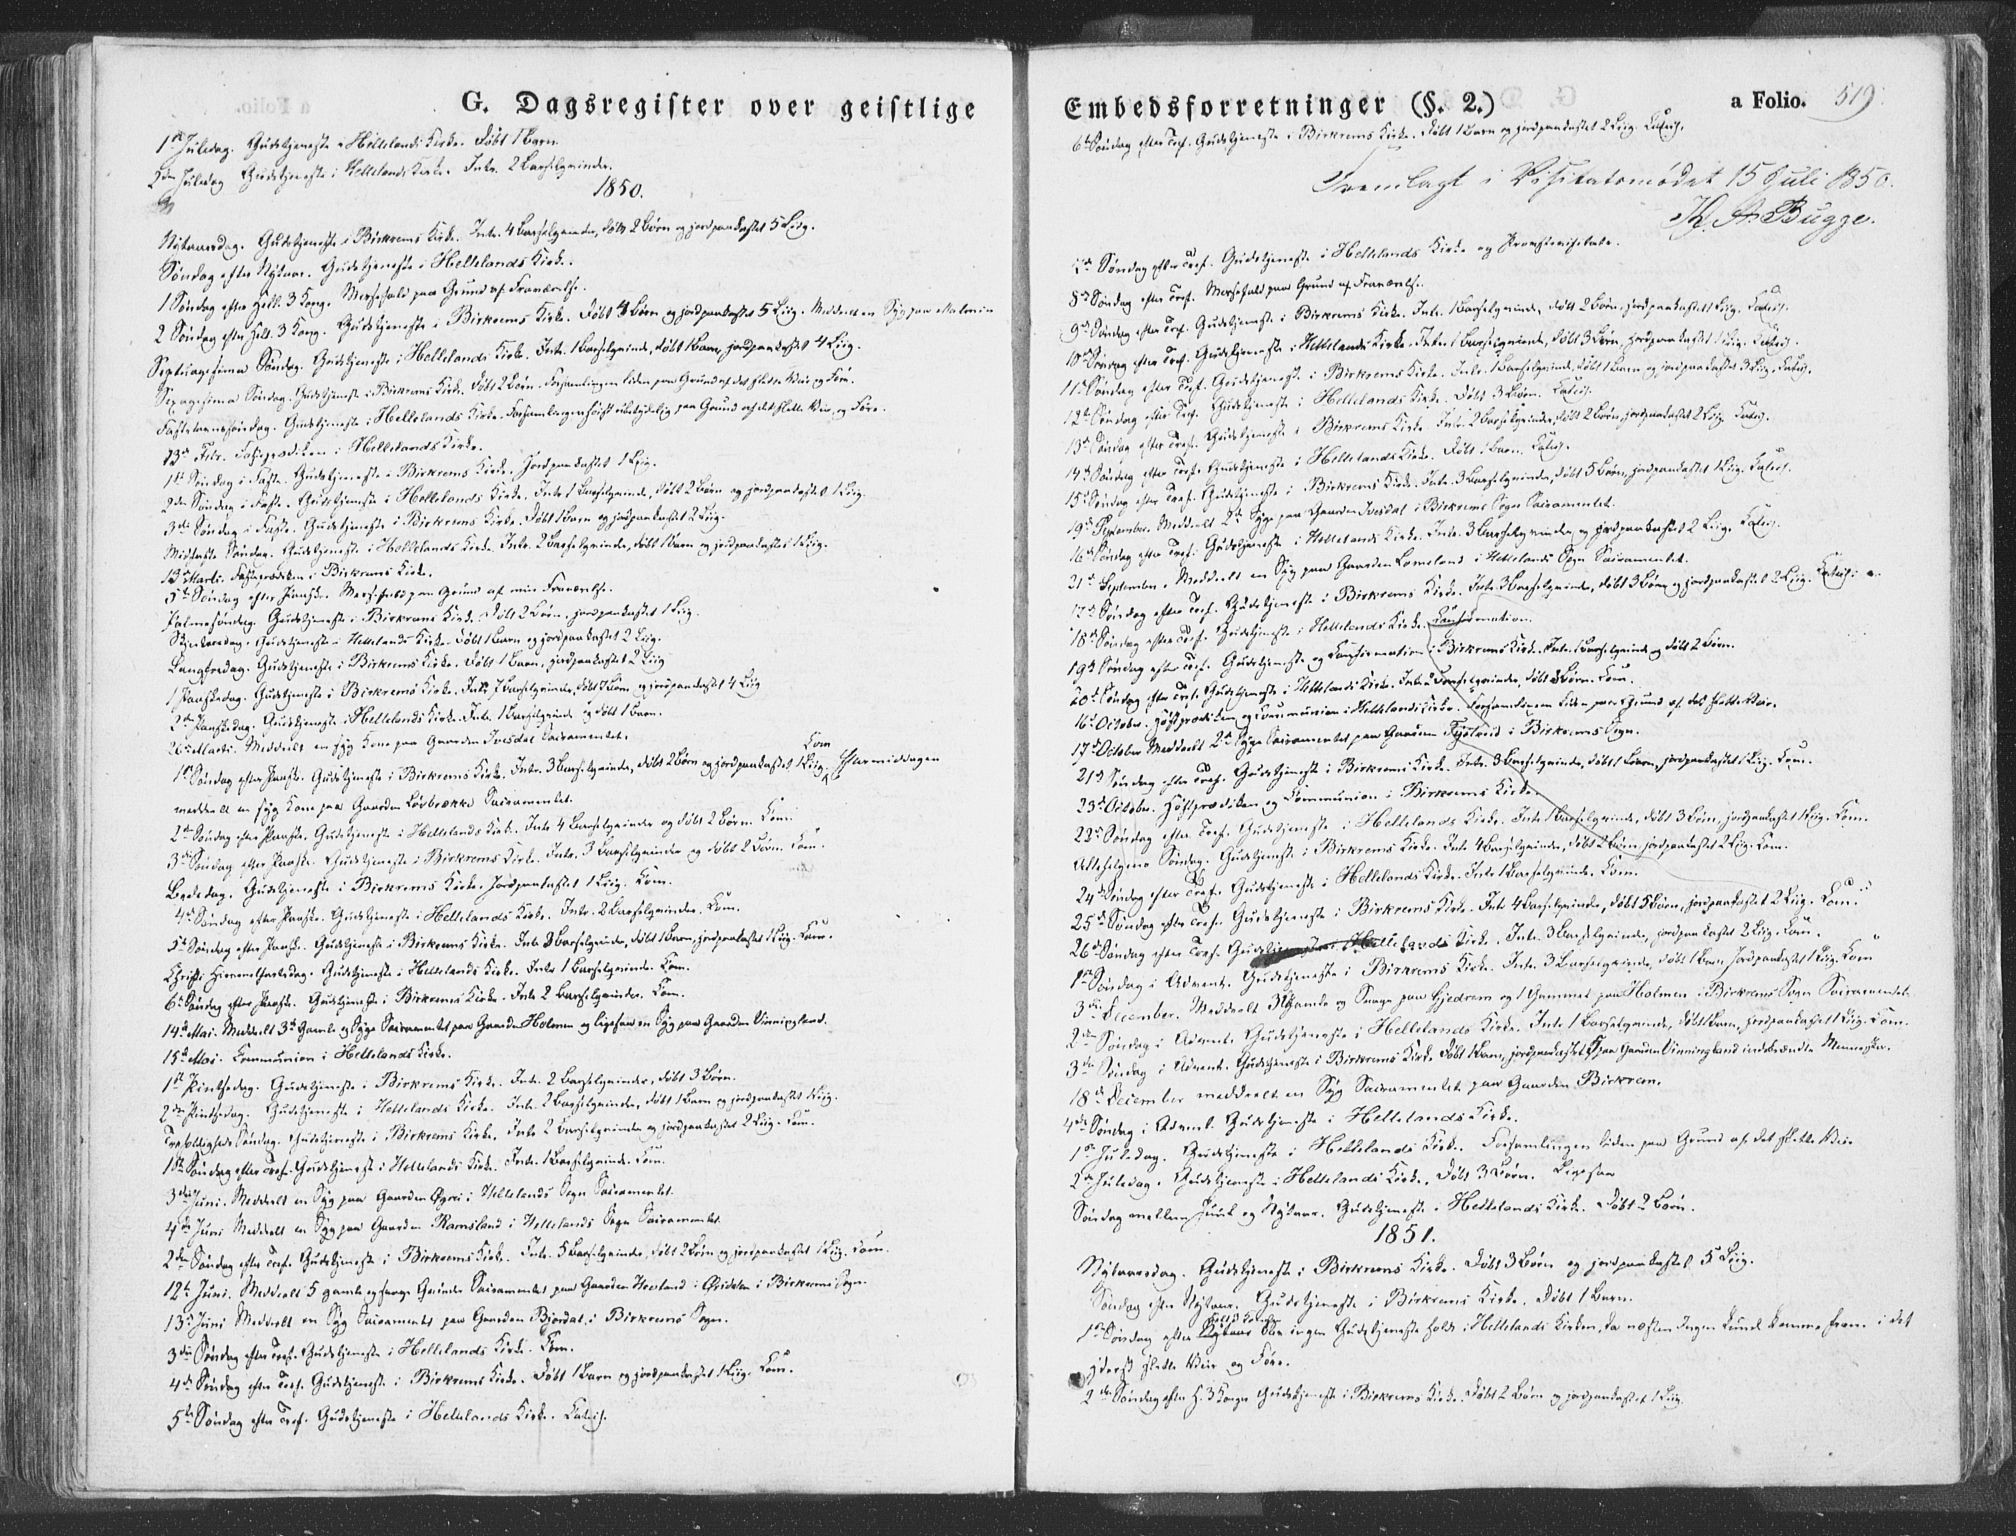 G. Dagsregister over geistlige
1ste Juledag. Gudstjeneste i Hellelands Kirke. Døbt 1 Barn.
2den Juledag Gudstjeneste i Hellelands Kirke. Intr. 2 Barselqvinder.
1850.
Nytaarsdag. Gudstjeneste i Birkrems Kirke. Intr. 4 Barselqvinder, døbt 2 Børn og jordpaakastet 5 Liig.
Søndag efter Nytaar. Gudstjeneste i Hellelands Kirke.
1 Søndag efter Hell. 3 Kong. Messefald paa Grund af Fraværelse.
2 Søndag efter Hell. 3 Kong. Gudstjeneste i Birkrems Kirke. Døbt 4 Børn og jordpaakastet 5 Liig. Meddeelt en Syg paa
Septuagesima Søndag. Gudstjeneste i Hellelands Kirke. Intr. 1 Barselqvinde, døbt 1 Barn, jordpaakastet 4 Liig.
Sexagesima Søndag. Gudstjeneste i Birkrems Kirke. Døbt 2 Børn. Forsamlingen liden paa Grund af det slette Veir og Føre.
Fastelavnssøndag. Gudstjeneste i Hellelands Kirke. Forsamlingen høist ubetydelig paa Grund af det slette Veir og Føre.
13de Febr. Fasteprædiken i Hellelands Kirke.
1ste Søndag i Faste. Gudstjeneste i Birkrems Kirke. Jordpaakastet 1 Liig.
2den Søndag i Faste. Gudstjeneste i Hellelands Kirke. Intr. 1 Barselqvinde, døbt 2 Børn og jordpaakastet 1 Liig.
3die Søndag i Faste. Gudstjeneste i Birkrems Kirke. Døbt 1 Barn og jordpaakastet 2 Liig.
Midfaste Søndag. Gudstjeneste i Hellelands Kirke. Intr. 2 Barselqvinder, døbt 1 Barn og jordpaakastet 1 Liig.
13de Marts. Fasteprædiken i Birkrems Kirke.
5te Søndag efter Paaske. Messefald paa Grund af min Fraværelse.
Palmesøndag. Gudstjeneste i Birkrems Kirke. Døbt 2 Børn, jordpaakastet 1 Liig.
Skjærtorsdag. Gudstjeneste i Hellelands Kirke. Døbt 1 Barn og jordpaakastet 2 Liig.
Langfredag. Gudstjeneste i Birkrems Kirke. Døbt 1 Barn, jordpaakastet 2 Liig
1 Paaskedag. Gudstjeneste i Birkrems Kirke. Intr. 7 Barselqvinder, døbt 7 Børn og jordpaakastet 4 Liig
2den Paaskedag. Gudstjeneste i Hellelands Kirke. Intr. 1 Barselqvinde og døbt 1 Barn.
26de Marts. Meddeelt en syg Kone paa Gaarden Ivesdal Sacramentet.
1ste Søndag efter Paaske. Gudstjeneste i Birkrems Kirke. Intr. 3 Barselqvinder, døbt 2 Børn og jordpaakastet 1 Liig. Kom. Eftermiddagen
meddeelt en syg Kone paa Gaarden Løvbrække Sacramentet.
2den Søndag efter Paaske. Gudstjeneste i Hellelands Kirke. Intr. 4 Barselqvinder og døbt 2 Børn. Kom.
3die Søndag efter Paaske. Gudstjeneste i Birkrems Kirke. Intr. 3 Barselqvinder og døbt 2 Børn. Kom.
Bededag. Gudstjeneste i Birkrems Kirke. Jordpaakastet 1 Liig. Kom.
4de Søndag efter Paaske. Gudstjeneste i Hellelands Kirke. Intr. 2 Barselqvinder. Kom.
5te Søndag efter Paaske. Gudstjeneste i Birkrems Kirke. Intr. 3 Barselqvinder, døbt 1 Barn, jordpaakastet 1 Liig. Kom.
Christi Himmelfartsdag. Gudstjeneste i Hellelands Kirke. Intr. 1 Barselqvinde. Kom.
6te Søndag efter Paaske. Gudstjeneste i Birkrems Kirke. Intr. 2 Barselqvinder. Kom.
14de Mai. Meddeelt 3de Gamle og Syge Sacramentet paa Gaarden Holmen og ligesaa en Syg paa Gaarden Vinningland.
15de Mai. Kommunion i Hellelands Kirke.
1ste Pintsedag. Gudstjeneste i Birkrems Kirke. Intr. 2 Barselqvinder, døbt 3 Børn.
2den Pintsedag. Gudstjeneste i Hellelands Kirke. Intr. 2 Barselqvinder, døbt 1 Barn og jordpaakastet 1 Liig.
Trefoldigheds Søndag. Gudstjeneste i Birkrems Kirke. Intr. 2 Barselqvinder og jordpaakastet 2 Liig. Kom.
1ste Søndag efter Tref. Gudstjeneste i Hellelands Kirke. Intr. 1 Barselqvinde. Kom.
3die Juni. Meddeelt en Syg paa Gaarden Øgrei i Hellelands Sogn Sacramentet.
4de Juni Meddeelt en Syg paa Gaarden Ramsland i Hellelands Sogn Sacramentet.
2den Søndag efter Tref. Gudstjeneste i Birkrems Kirke. Intr. 5 Barselqvinder, døbt 2 Børn og jordpaakastet 1 Liig. Kom.
12te Juni. Meddeelt 5 gamle og svage Qvinder Sacramentet paa Gaarden Hovland i Ørsdalen i Birkrems Sogn.
13de Juni Meddeelt en Syg Sacramentet paa Gaarden Bjordal i Birkrems Sogn.
3die Søndag efter Tref. Gudstjeneste i Hellelands Kirke. Kom.
4de Søndag efter Tref. Gudstjeneste i Birkrems Kirke. Døbt 1 Barn og jordpaakastet 1 Liig. Kom.
5te Søndag efter Tref. Gudstjeneste i Hellelands Kirke. Catech.
Embedsforretninger (§. 2.) a Folio. 519
6te Søndag efter Tref. Gudstjeneste i Birkrems Kirke. Døbt 1 Barn og jordpaakastet 2 Liig. Catech.
Fremlagt i Visitatsmødet 15 Juli 1850.
Bugge.
7de Søndag efter Tref. Gudstjeneste i Hellelands Kirke og Provstevisitats.
8de Søndag efter Tref. Messefald paa Grund af Fraværelse.
9de Søndag efter Tref. Gudstjeneste i Birkrems Kirke. Intr. 1 Barselqvinde, døbt 2 Børn, jordpaakastet 1 Liig. Catech.
10de Søndag efter Tref. Gudstjeneste i Hellelands Kirke. Intr. 1 Barselqvinde, døbt 3 Børn, jordpaakastet 1 Liig. Catech.
11te Søndag efter Tref. Gudstjeneste i Birkrems Kirke. Intr. 1 Barselqvinde, døbt 1 Barn og jordpaakastet 3 Liig. Catech.
12te Søndag efter Tref. Gudstjeneste i Hellelands Kirke. Døbt 3 Børn. Catech.
13de Søndag efter Tref. Gudstjeneste i Birkrems Kirke. Intr. 2 Barselqvinder, døbt 2 Børn, jordpaakastet 2 Liig. Catech.
14de Søndag efter Tref. Gudstjeneste i Hellelands Kirke. Døbt 1 Barn. Catech.
15de Søndag efter Tref. Gudstjeneste i Birkrems Kirke. Intr. 3 Barselqvinder, døbt 5 Børn, jordpaakastet 1 Liig. Catech.
19de September. Meddeelt 2de Syge paa Gaarden Ivesdal i Birkrems Sogn Sacramentet.
16de Søndag efter Tref. Gudstjeneste i Hellelands Kirke. Intr. 3 Barselqvinder og jordpaakastet 2 Liig. Catech.
21de September. Meddeelt en Syg paa Gaarden Lomeland i Hellelands Sogn Sacramentet.
17de Søndag efter Tref. Gudstjeneste i Birkrems Kirke. Intr. 3 Barselqvinder, døbt 3 Børn og jordpaakastet 2 Liig. Catech.
18de Søndag efter Tref. Gudstjeneste i Hellelands Kirke. Confirmation.
19de Søndag efter Tref. Gudstjeneste og Confirmation i Birkrems Kirke. Intr. 1 Barselqvinde og døbt 2 Børn.
20de Søndag efter Tref. Gudstjeneste i Hellelands Kirke. Intr. 2 Barselqvinder, døbt 3 Børn. Kom.
16de October. Høstprædiken og Communion i Hellelands Kirke. Forsamlingen liden paa Grund af det slette Veir.
17de October Meddeelt 2de Syge Sacramentet paa Gaarden i Birkrems Sogn.
21de Søndag efter Tref. Gudstjeneste i Birkrems Kirke. Intr. 3 Barselqvinder, døbt 1 Barn, jordpaakastet 1 Liig. Kom.
23de October. Høstprædiken og Kommunion i Birkrems Kirke.
22de Søndag efter Tref. Gudstjeneste i Hellelands Kirke. Intr. 1 Barselqvinde, døbt 3 Børn, jordpaakastet 1 Liig. Kom.
Allehelgens Søndag. Gudstjeneste i Birkrems Kirke. Intr. 4 Barselqvinder, døbt 2 Børn jordpaakastet 2 Liig. Kom.
24de Søndag efter Tref. Gudstjeneste i Hellelands Kirke. Intr. 1 Barselqvinde. Kom.
25de Søndag efter Tref. Gudstjeneste i Birkrems Kirke. Intr. 4 Barselqvinder, døbt 5 Børn, jordpaakastet 2 Liig. Kom.
26de Søndag efter Tref. Gudstjeneste i Hellelands Kirke. Intr. 3 Barselqvinder, jordpaakastet 2 Liig. Kom.
1ste Søndag i Advent. Gudstjeneste i Birkrems Kirke. Intr. 3 Barselqvinder, døbt 1 Barn, jordpaakastet 1 Liig. Kom.
3die December. Meddeelt 3 Gamle og Svage paa Gjedrem og 1 Gammel paa Holmen i Birkrems Sogn Sacramentet.
2den Søndag i Advent. Gudstjeneste i Hellelands Kirke. Intr. 1 Barselqvinde, døbt 1 Barn, jordpaakastet 1 Liig. Kom.
3die Søndag i Advent. Gudstjeneste i Birkrems Kirke. Døbt 1 Barn, jordpaakastet 5 paa Gaarden Vinningland indebrændte Mennesker.
18de December meddeelt en Syg Sacramentet paa Gaarden Birkrem.
4de Søndag i Advent. Gudstjeneste i Hellelands Kirke.
1ste Juledag. Gudstjeneste i Hellelands Kirke. Forsamlingen liden paa Grund af det slette Veir.
2den Juledag. Gudstjeneste i Hellelands Kirke. Døbt 3 Børn. Ligesaa
Søndag mellem Juul og Nytaar. Gudstjeneste i Hellelands Kirke. Døbt 2 Børn.
1851.
Nytaarsdag. Gudstjeneste i Birkrems Kirke. Døbt 3 Børn og jordpaakastet 5 Liig.
Søndag efter Nytaar. Gudstjeneste i Birkrems Kirke. Døbt 1 Barn.
1ste Søndag efter Hell. 3 Konger blev ingen Gudstjeneste holdt i Hellelands Kirken, da næsten Ingen kunde komme frem i det
yderst slette Veir og Føre.
2den Søndag efter H. 3 Konger Gudstjeneste i Birkrems Kirke. Døbt 2 Børn og jordpaakastet 1 Liig.